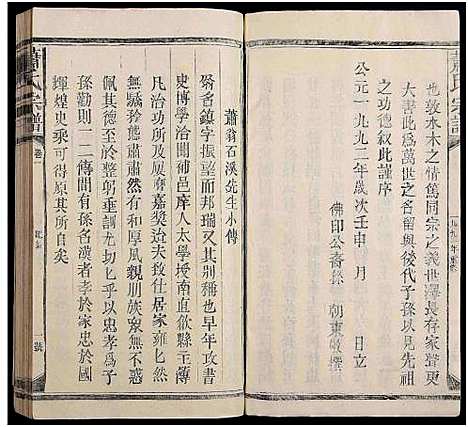 蕭氏宗譜
也敦水木之情篤同宗之義世澤長存家聲更
大書此為萬世之名留與後代子孫以見先祖
之功德叙此謹序
公元一九九二年歲次壬申 月 日立
佛印公裔孫 朝東敬撰
蕭翁石溪先生小傳
翁名鎮字振望而邦瑞又其別稱也早年攻書
史博學洽聞補邑庠入太學授南直歙縣主簿
凡治功及展廢嘉奬迭至後致仕居家雍匕然
無驕矜態肅肅然有恭寬風見親朋族眾無不惑
佩其德至於整躬垂訓尤切匕乎以忠孝爲子
孫勸則一二傳間有孫名漢者李於家忠於國
輝煌史乘可得原其所自矣
蕭氏宗譜
卷
一號